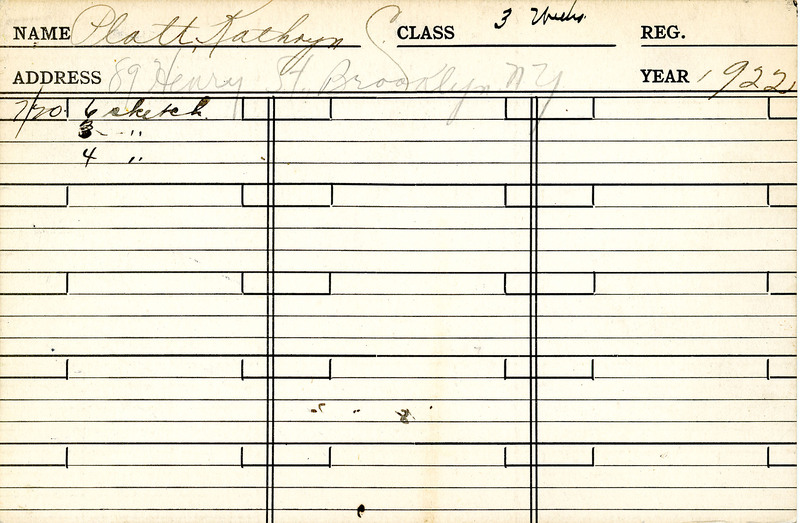 NAME Platt, Kathryn C. CLASS 3 Weeks. REG.
ADDRESS 89 Henry St. Brooklyn NY YEAR 1922
7/20. 6 sketch
3 "
4 "